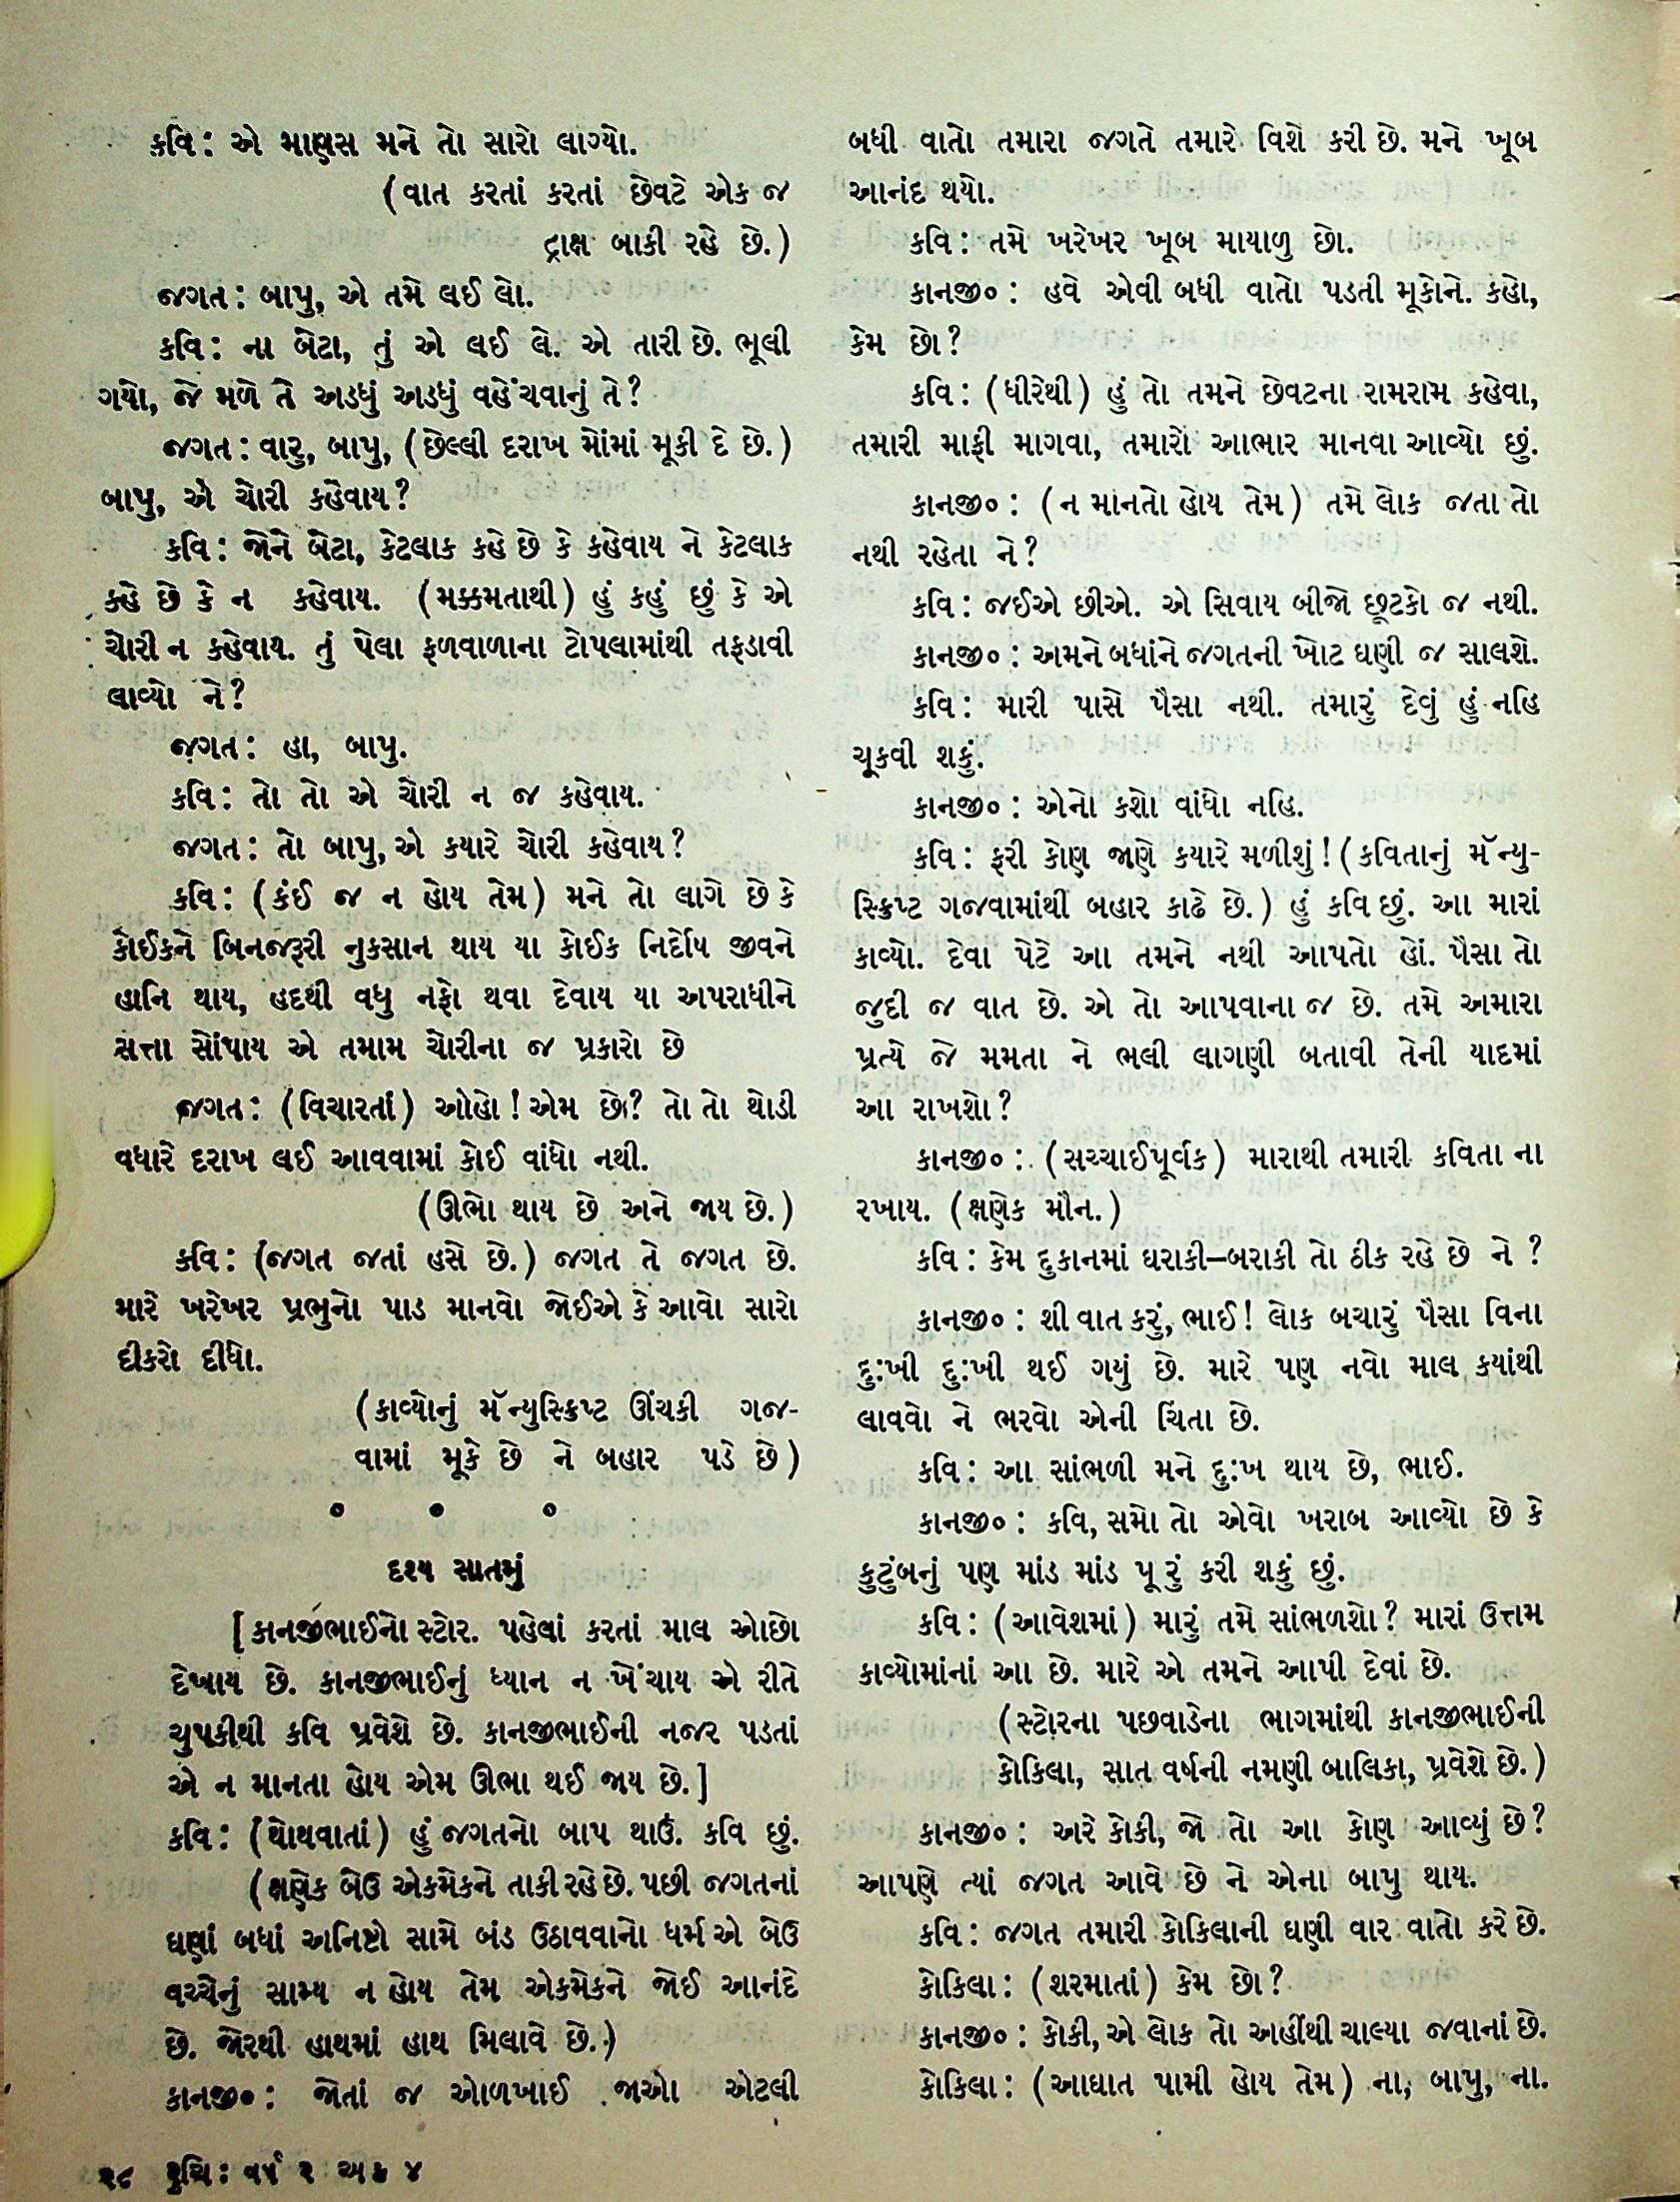 કવિ: એ માણસ મને તો સારો લાગ્યો.
(વાત કરતાં કરતાં છેવટે એક જ
દ્રાક્ષ બાકી રહે છે.)
જગત: બાપુ, એ તમે લઈ લો.
કવિ: ના બેટા, તું એ લઈ લે. એ તારી છે. ભૂલી
ગયો, જે મળે તે અડધું અડધું વહેંચવાનું તે?
જગત: વારુ, બાપુ, (છેલ્લી દરાખ મોંમાં મૂકી દે છે.)
બાપુ, એ ચોરી કહેવાય?
કવિ: જોને બેટા, કેટલાક કહે છે કે કહેવાય ને કેટલાક
કહે છે કે ન કહેવાય. (મક્કમતાથી) હું કહું છું કે એ
ચોરી ન કહેવાય. તું પેલા ફળવાળાના ટોપલામાંથી તફડાવી
લાવ્યો ને?
જગત: હા, બાપુ.
કવિ: તો તો એ ચોરી ન જ કહેવાય.
જગત: તો બાપુ, એ કયારે ચોરી કહેવાય?
કવિ: (કંઈ જ ન હોય તેમ) મને તો લાગે છે કે
કોઈકને બિનજરૂરી નુકસાન થાય યા કોઈક નિર્દોષ જીવને
હાનિ થાય, હદથી વધુ નફો થવા દેવાય યા અપરાધીને
સત્તા સોંપાય એ તમામ ચોરીના જ પ્રકારો છે
જગત: (વિચારતાં) ઓહો! એમ છે? તો તો થોડી
વધારે દરાખ લઈ આવવામાં કોઈ વાંધો નથી.
(ઊભો થાય છે અને જાય છે.)
કવિ: (જગત જતાં હસે છે.) જગત તે જગત છે.
મારે ખરેખર પ્રભુનો પાડ માનવો જોઈએ કે આવો સારો
દીકરો દીધો.
(કાવ્યોનું મૅન્યુસ્ક્રિપ્ટ ઊંચકી ગજ-
વામાં મૂકે છે ને બહાર પડે છે)
દૃશ્ય સાતમું
[કાનજીભાઈનો સ્ટોર. પહેલાં કરતાં માલ ઓછો
દેખાય છે. કાનજીભાઈનું ધ્યાન ન ખેંચાય એ રીતે
ચુપકીથી કવિ પ્રવેશે છે. કાનજીભાઈની નજર પડતાં
એ ન માનતા હોય એમ ઊભા થઈ જાય છે.]
કવિ: (થોથવાતાં) હું જગતનો બાપ થાઉં. કવિ છું.
(ક્ષણેક બેઉ એકમેકને તાકી રહે છે. પછી જગતનાં
ઘણાં બધાં અનિષ્ટો સામે બંડ ઉઠાવવાનો ધર્મ એ બેઉ
વચ્ચેનું સામ્ય ન હોય તેમ એકમેકને જોઈ આનંદે
છે. જોરથી હાથમાં હાથ મિલાવે છે.)
કાનજી૦: જોતાં જ ઓળખાઈ જાઓ એટલી
બધી વાતો તમારા જગતે તમારે વિશે કરી છે. મને ખૂબ
આનંદ થયો.
કવિ: તમે ખરેખર ખૂબ માયાળુ છો.
કાનજી૦: હવે એવી બધી વાતો પડતી મૂકોને. કહો,
કેમ છો?
કવિ: (ધીરેથી) હું તો તમને છેવટના રામરામ કહેવા,
તમારી માફી માગવા, તમારો આભાર માનવા આવ્યો છું.
કાનજી૦: (ન માનતો હોય તેમ) તમે લોક જતા તો
નથી રહેતા ને?
કવિ: જઈએ છીએ. એ સિવાય બીજો છૂટકો જ નથી.
કાનજી૦: અમને બધાંને જગતની ખોટ ઘણી જ સાલશે.
કવિ: મારી પાસે પૈસા નથી. તમારું દેવું હું નહિ
ચૂકવી શકું.
કાનજી૦: એનો કશો વાંધો નહિ.
કવિ: ફરી કોણ જાણે કયારે મળીશું! (કવિતાનું મૅન્યુ-
સ્ક્રિપ્ટ ગજવામાંથી બહાર કાઢે છે.) હું કવિ છું. આ મારાં
કાવ્યો. દેવા પેટે આ તમને નથી આપતો હોં. પૈસા તો
જુદી જ વાત છે. એ તો આપવાના જ છે. તમે અમારા
પ્રત્યે જે મમતા ને ભલી લાગણી બતાવી તેની યાદમાં
આ રાખશો?
કાનજી૦: (સચ્ચાઈપૂર્વક) મારાથી તમારી કવિતા ના
રખાય. (ક્ષણેક મૌન.)
કવિ: કેમ દુકાનમાં ઘરાકી–બરાકી તો ઠીક રહે છે ને?
કાનજી૦: શી વાત કરું, ભાઈ! લોક બચારું પૈસા વિના
દુ:ખી દુ:ખી થઈ ગયું છે. મારે પણ નવો માલ કયાંથી
લાવવો ને ભરવો એની ચિંતા છે.
કવિ: આ સાંભળી મને દુ:ખ થાય છે, ભાઈ.
કાનજી૦: કવિ, સમો તો એવો ખરાબ આવ્યો છે કે
કુટુંબનું પણ માંડ માંડ પૂરું કરી શકું છું.
કવિ: (આવેશમાં) મારું તમે સાંભળશો? મારાં ઉત્તમ
કાવ્યોમાંનાં આ છે. મારે એ તમને આપી દેવાં છે.
(સ્ટોરના પછવાડેના ભાગમાંથી કાનજીભાઈની
કોકિલા, સાત વર્ષની નમણી બાલિકા, પ્રવેશે છે.)
કાનજી૦: અરે કોકી, જો તો આ કોણ આવ્યું છે?
આપણે ત્યાં જગત આવે છે ને એના બાપુ થાય.
કવિ: જગત તમારી કોકિલાની ઘણી વાર વાતો કરે છે.
કોકિલા: (શરમાતાં) કેમ છો?
કાનજી૦: કોકી, એ લોક તો અહીંથી ચાલ્યા જવાનાં છે.
કોકિલા: (આઘાત પામી હોય તેમ) ના, બાપુ, ના.
૨૮ રુચિ: વર્ષ ૨ અંક ૪